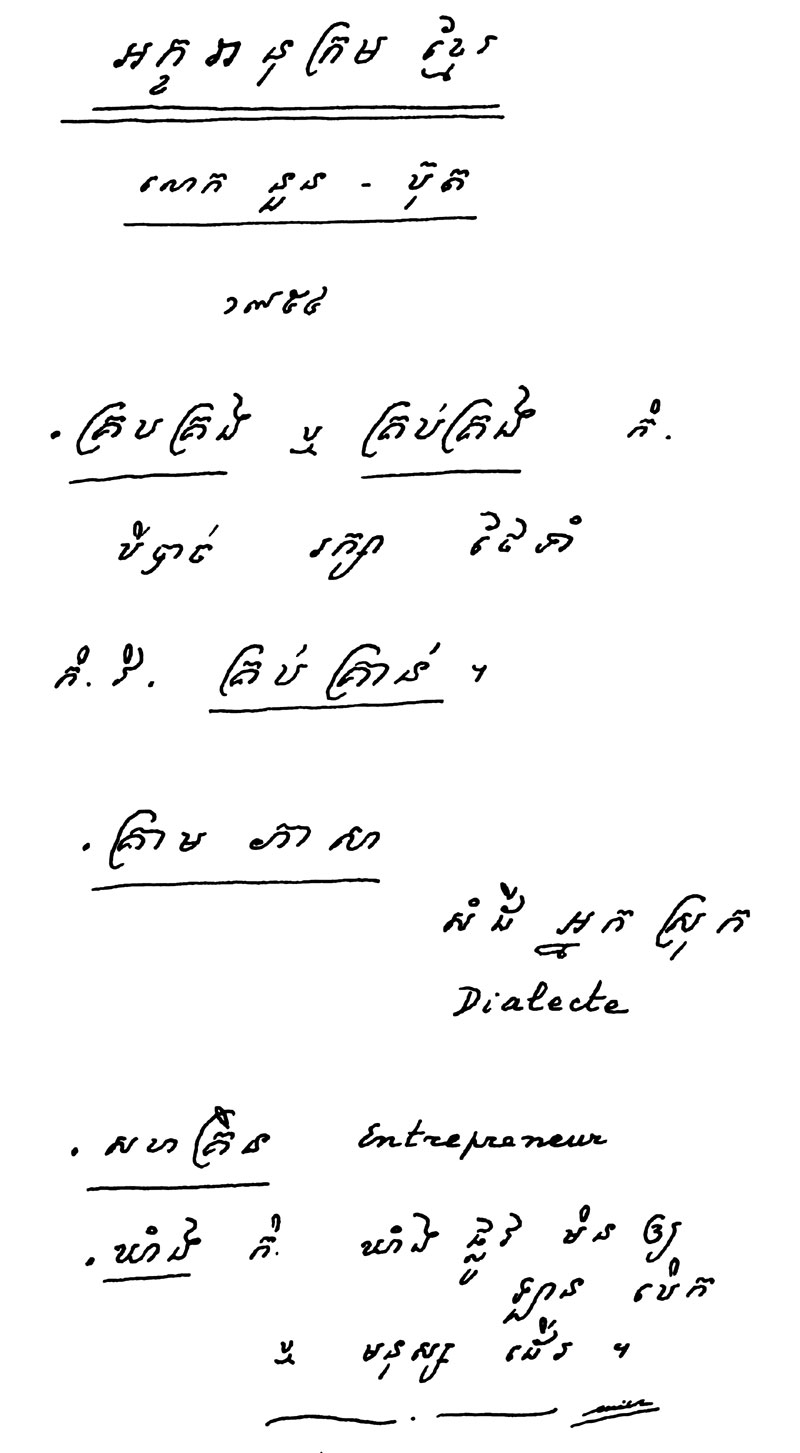 អក្ខរានុក្រម ខ្មែរ
លោក នួន - ប៊ុត
១៩៥៤
. គ្របគ្រង ឬ គ្រប់គ្រង កិ.
បំបាច់ រក្សា ថែទាំ
កិ. វិ. គ្រប់ គ្រាន់ ។
. គ្រាម ភាសា
សំដី អ្នក ស្រុក
Dialecte
. សហគ្រិន Entrepreneur
. ឃាំង កិ. ឃាំង ផ្លូវ មិន ឲ្យ
ឡាន បើក
ឬ មនុស្ស ដើរ ។